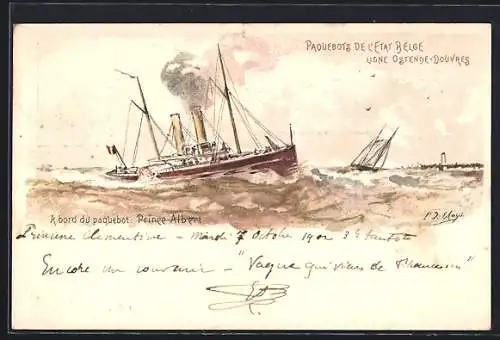 PAQUEBOTS DE L'ETAT BELGE
LIGNE OSTENDE-DOUVRES
A bord du paquebot: Prince Albert
Clementine - Mardi 7 Octobre 1902
Encore un souvenir - "Vague qui vient de